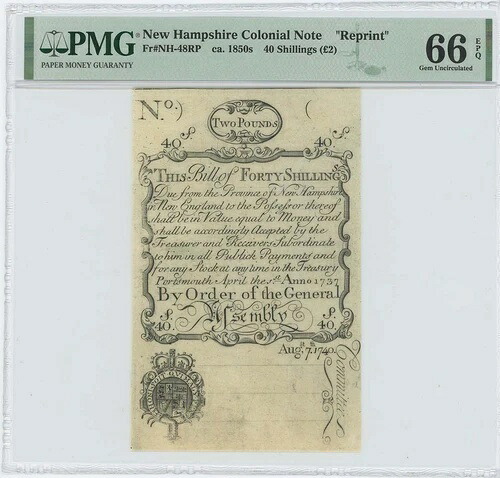 PMG
PAPER MONEY GUARANTY
New Hampshire Colonial Note "Reprint"
Fr#NH-48RP ca. 1850s 40 Shillings (£2)
66 EPQ
Gem Uncirculated
No.) (
TWO POUNDS
40 S. 40 S.
THIS Bill of FORTY SHILLINGS
Due from the Province of New Hampshire
in New England to the Possessor thereof
shall be in Value equal to Money and
shall be accordingly Accepted by the
Treasurer and Receivers Subordinate
to him in all Publick Payments and
for any Stock at any time in the Treasury
Portsmouth April the 1st. Anno 1737
By Order of the General
S. Assembly S.
40. 40.
Augst. 7th. 1740.
Committee